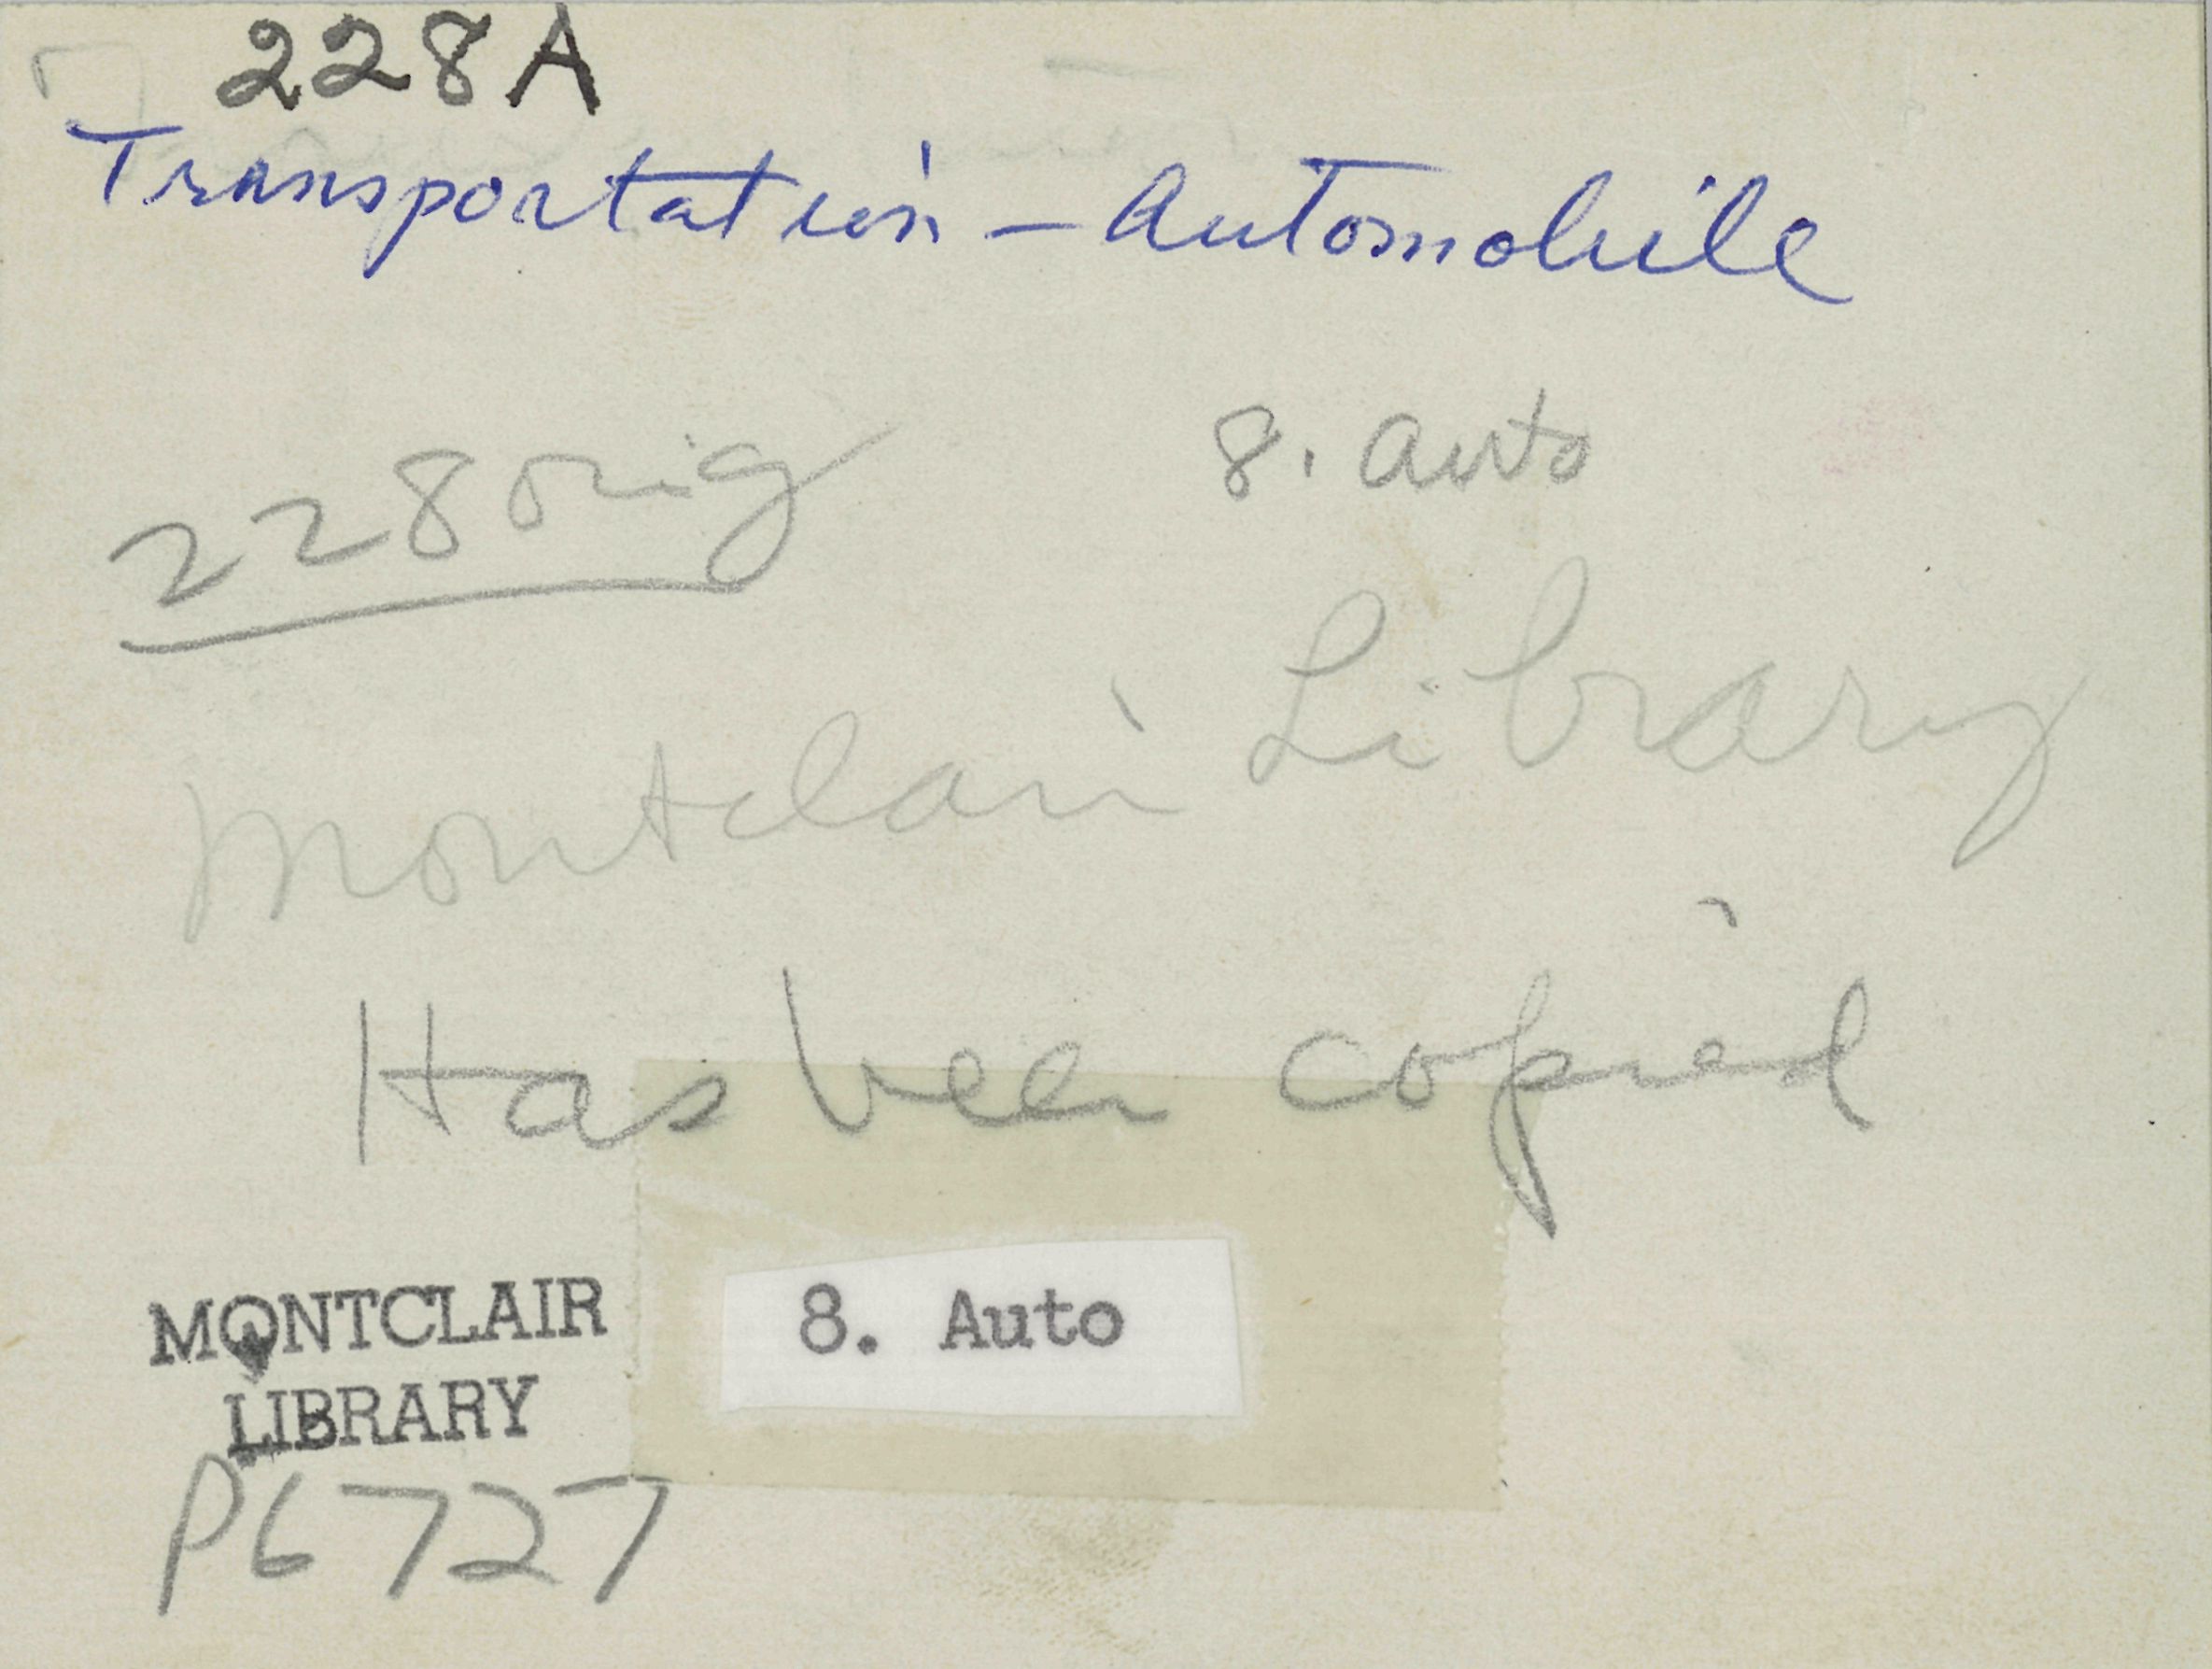 228A
Transportation - Automobile
228 orig
8. Auto
Montclair Library
Has been copied
MONTCLAIR
LIBRARY
8. Auto
P6727